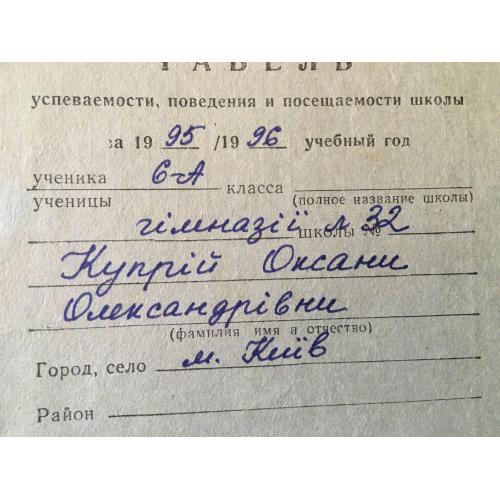 ТАБЕЛЬ
успеваемости, поведения и посещаемости школы
за 1995/1996 учебный год
ученика 6-А класса
ученицы (полное название школы)
гімназії л 32
школы №
Купрій Оксани
Олександрівни
(фамилия имя и отчество)
Город, село м. Київ
Район